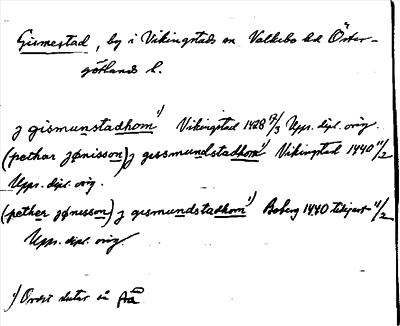 Gismestad, by i Vikingstads sn Valkebo hd Öster-
götlands l.
j gismunstadhom¹⁾ Vikingstad 1428 9/3 Upps. dipl. orig.
(pethar jønisson) j gissmundstadhom¹⁾ Vikingstad 1440 11/2
Upps. dipl. orig.
(pether jønisson) j gismundstadhom¹⁾ Boberg 1440 11/2
Upps. dipl. orig.
¹⁾ Ordet slutar på